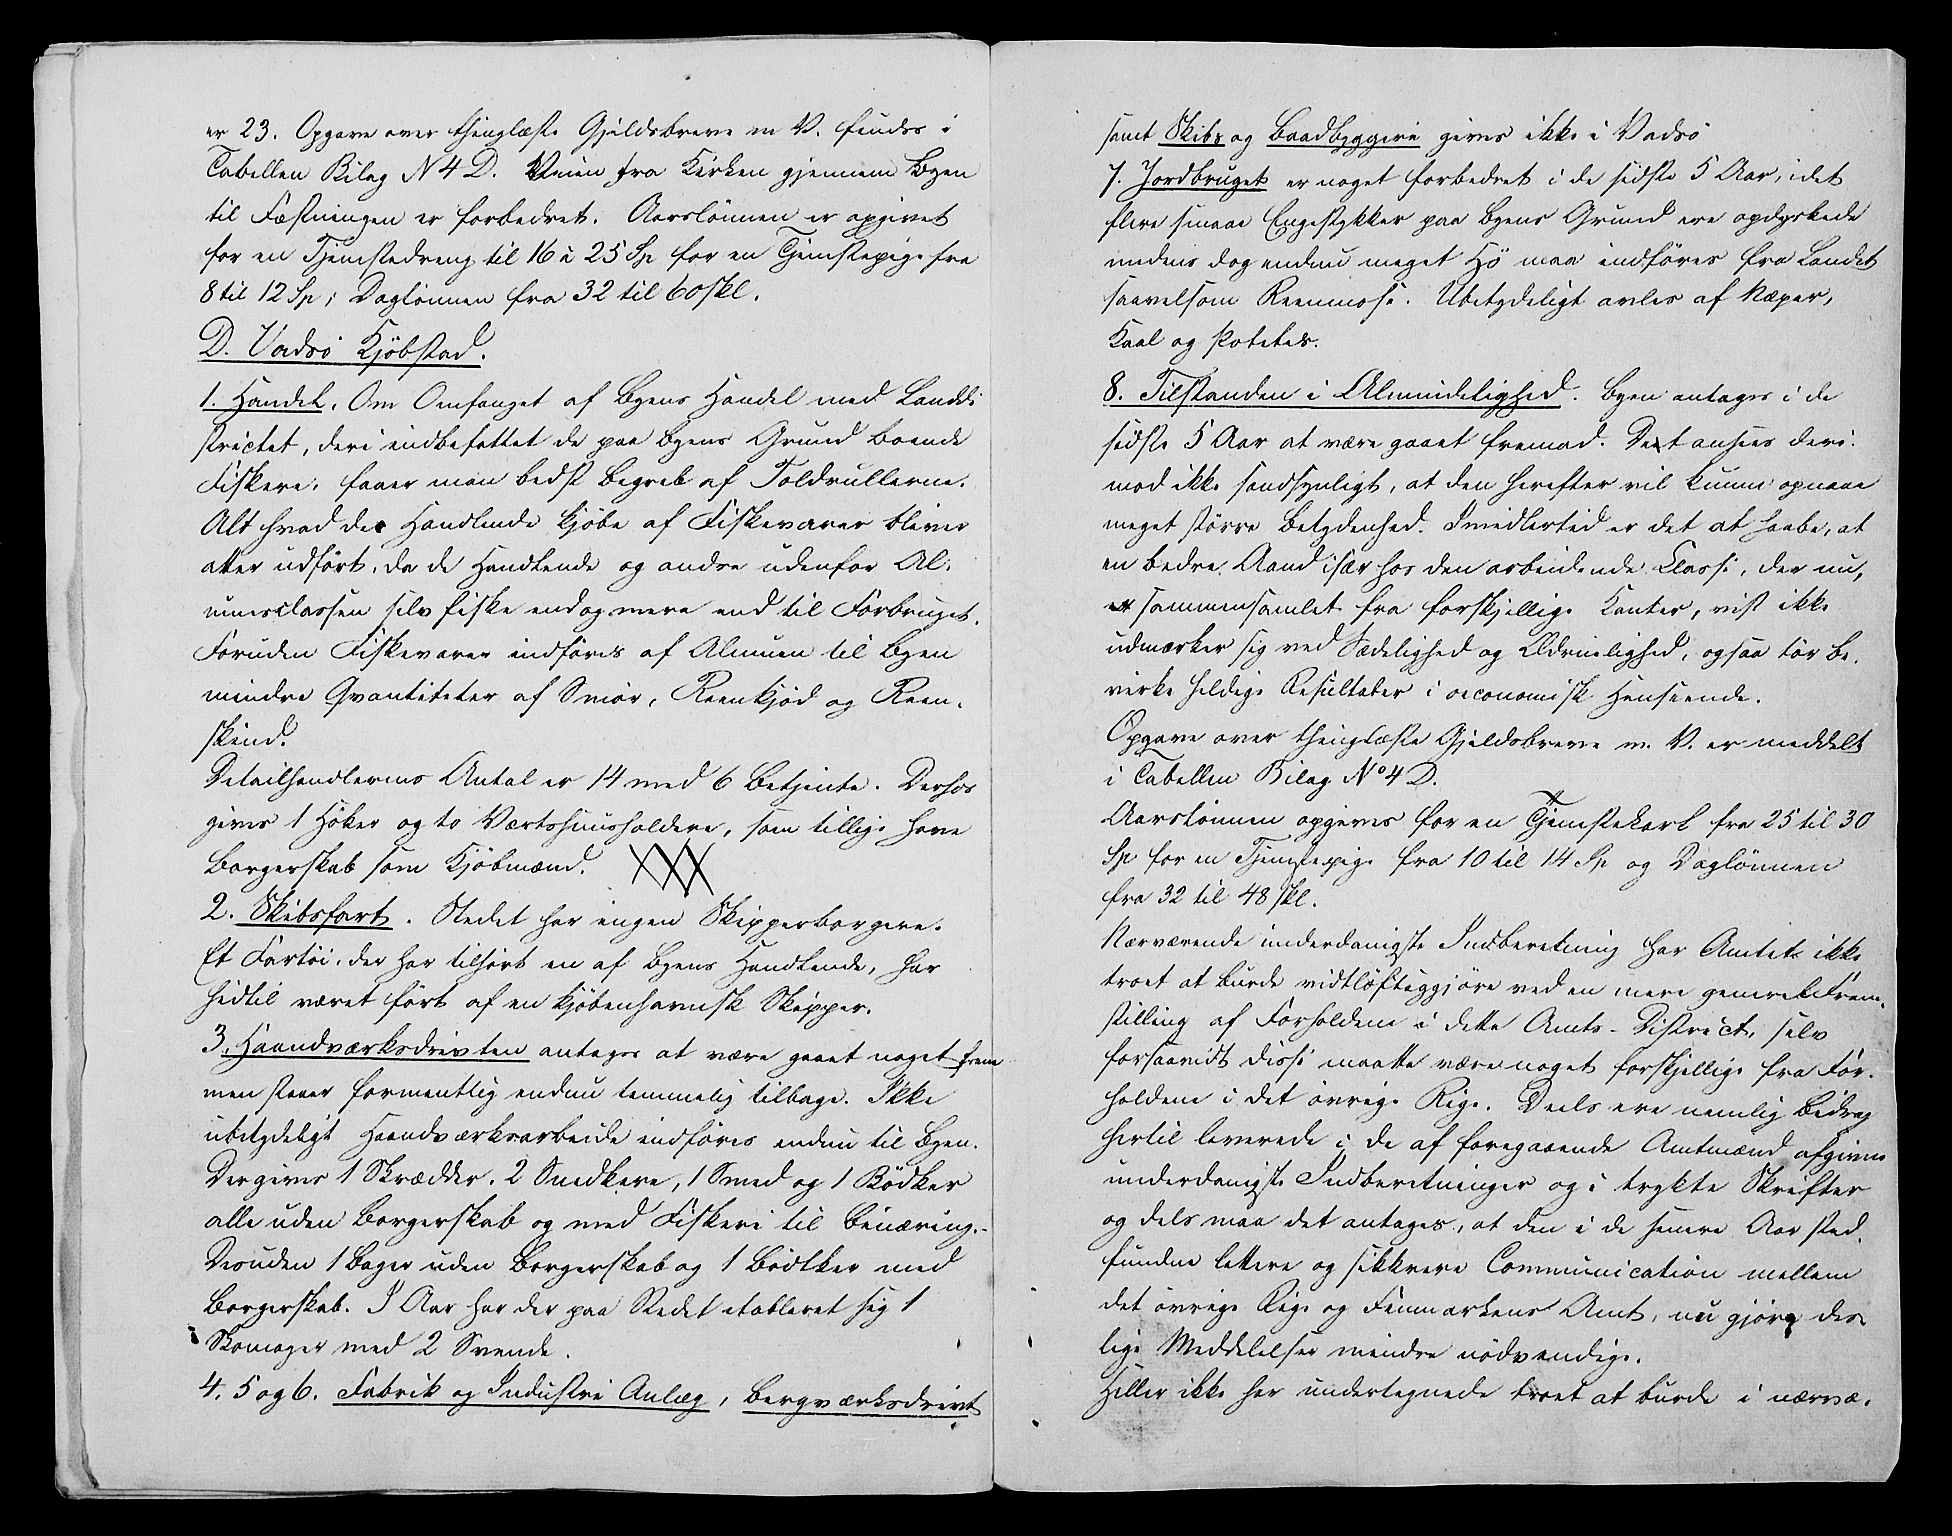 er 23. Opgave over thinglæste Gjeldsbreve m V. findes i
Tabellen Bilag N 4 D. Veien fra Kirken gjennem Byen
til Fæstningen er forbedret. Aarslönnen er opgivet
for en Tjenestedreng til 16 à 25 Sp for en Tjenestepige fra
8 til 12 Sp; Daglönnen fra 32 til 60 skl.
D. Vadsö Kjöbstad.
1. Handel. Om Omfanget af Byens Handel med Landdi
strictet, deri indbefattet de paa Byens Grund boende
Fiskere, faaer man bedst Begreb af Toldrullerne.
Alt hvad de Handlende kjöbe af Fiskevarer bliver
atter udfört, da de Handlende og andre udenfor Al-
muesclassen selv fiske endog mere end til Forbruget.
Foruden Fiskevarer indföres af Almuen til Byen
mindre Qvantiteter af Smör, Reenkjöd og Reen-
skind.
Detailhandlernes Antal er 14 med 6 Betjente. Derhos
gives 1 Höker og to Værtshuusholdere, som tillige have
Borgerskab som Kjöbmænd.
2. Skibsfart. Stedet har ingen Skipperborgere.
Et Fartöi, der har tilhört en af Byens Handlende, har
hidtil været fört af en kjöbenhavnsk Skipper.
3. Haandværksdrivten antages at være gaaet noget frem
men staaer formentlig endnu temmelig tilbage. Ikke
ubetydeligt Haandværksarbeide indföres endnu til Byen.
Der gives 1 Skrædder, 2 Snedkere, 1 Smed og 1 Bödker
alle uden Borgerskab og med Fiskeri til Binæring.-
Desuden 1 Bager uden Borgerskab og 1 Bödtker med
Borgerskab. I Aar har der paa Stedet etableret sig 1
Skomager med 2 Svende.
4, 5 og 6. Fabrik og Industrie Anlæg, Bergværksdrivt
samt Skibs og Baadbyggerie gives ikke i Vadsö
7. Jordbruget er noget forbedret i de sidste 5 Aar, idet
flere smaae Engestykker paa Byens Grund ere opdyrkede
medens dog endnu meget Hö maa indföres fra Landet
saavelsom Reenmose. Ubetydeligt avles af Næper,
Kaal og Potetes.
8. Tilstanden i Almindelighed. Byen antages i de
sidste 5 Aar at være gaaet fremad. Det ansees deri-
mod ikke sandsynligt, at den herefter vil kunne opnaae
meget större Betydenhed. Imidlertid er det at haabe, at
en bedre Aand især hos den arbeidende Classe, der nu,
sammensamlet fra forskjellige Kanter, vist ikke
udmærker sig ved Sædelighed og Ædruelighed, ogsaa tör be-
virke heldige Resultater i oeconomisk Henseende.
Opgave over thinglæste Gjeldsbreve m. V. er meddelt
i Tabellen Bilag No 4 D.
Aarslönnen opgives for en Tjenestekarl fra 25 til 30
Sp for en Tjenestepige fra 10 til 14 Sp og Daglönnen
fra 32 til 48 skl.
Nærværende underdanigste Indberetning har Amtet ikke
troet at burde vidtlöftiggjöre ved en mere generel Frem-
stilling af Forholdene i dette Amts-District, selv
forsaavidt disse maatte være noget forskjellige fra For-
holdene i det övrige Rige. Deels ere nemlig Bidrag
hertil leverede i de af foregaaende Amtmænd afgivne
underdanigste Indberetninger og i trykte Skrifter
og dels maa det antages, at den i de senere Aar sted-
fundne lettere og sikkrere Communication mellem
det övrige Rige og Finmarkens Amt, nu gjöre des-
lige Meddelelser mindre nödvendige.
Heller ikke har undertegnede troet at burde i nærvæ-